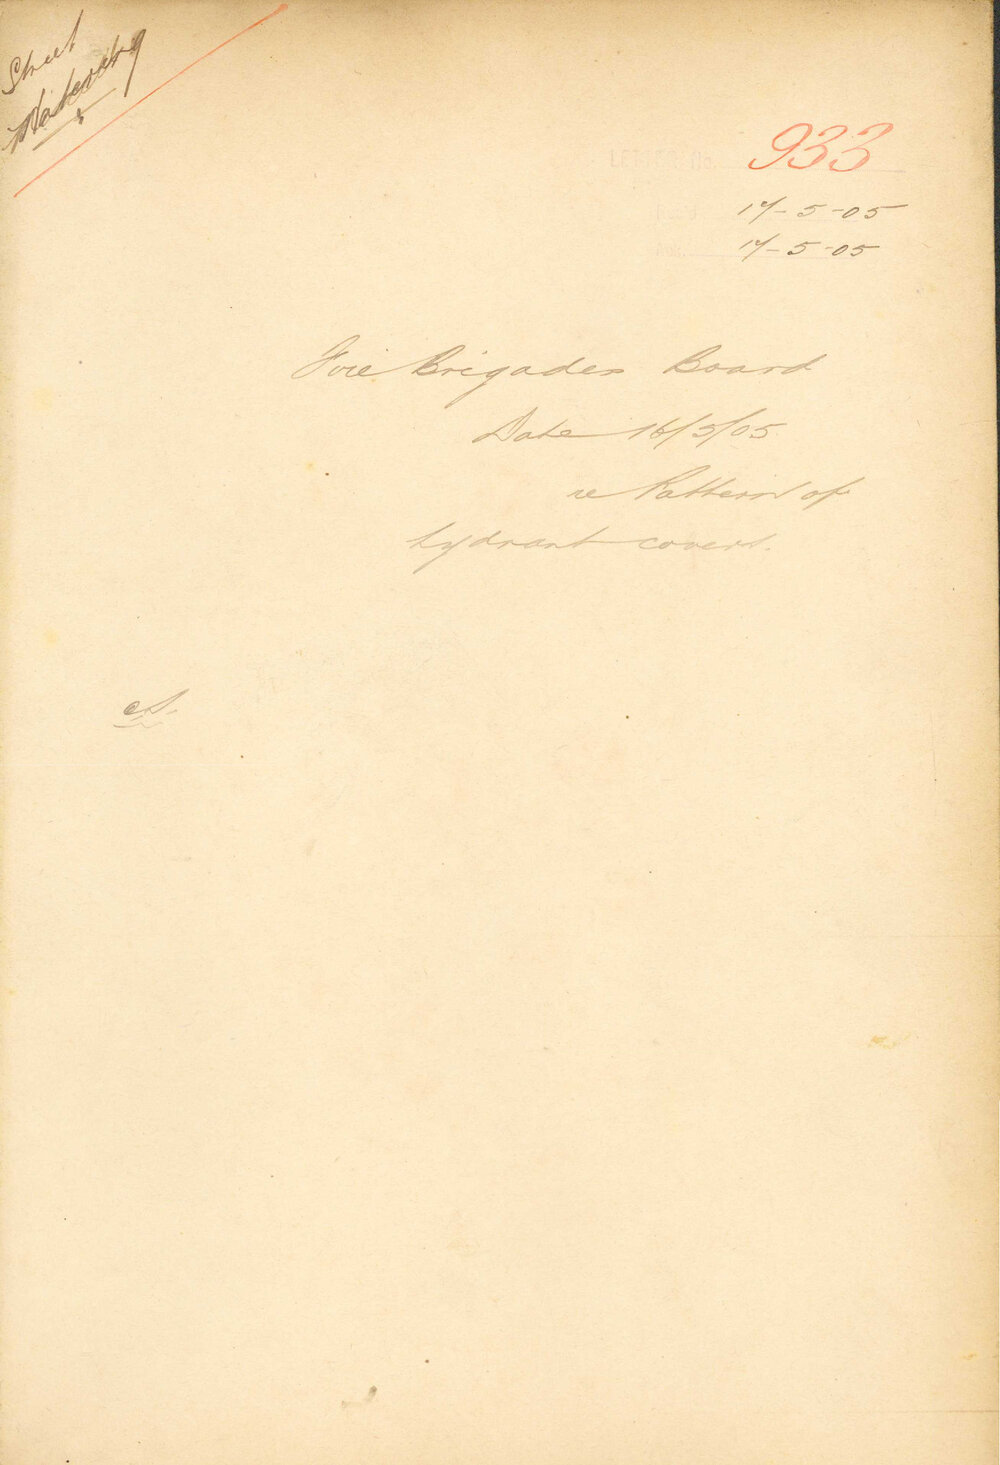 Street
Watering
LETTER No. 933
17-5-05
17-5-05
Fire Brigades Board
Date 16/5/05
re Pattern of
hydrant covers.